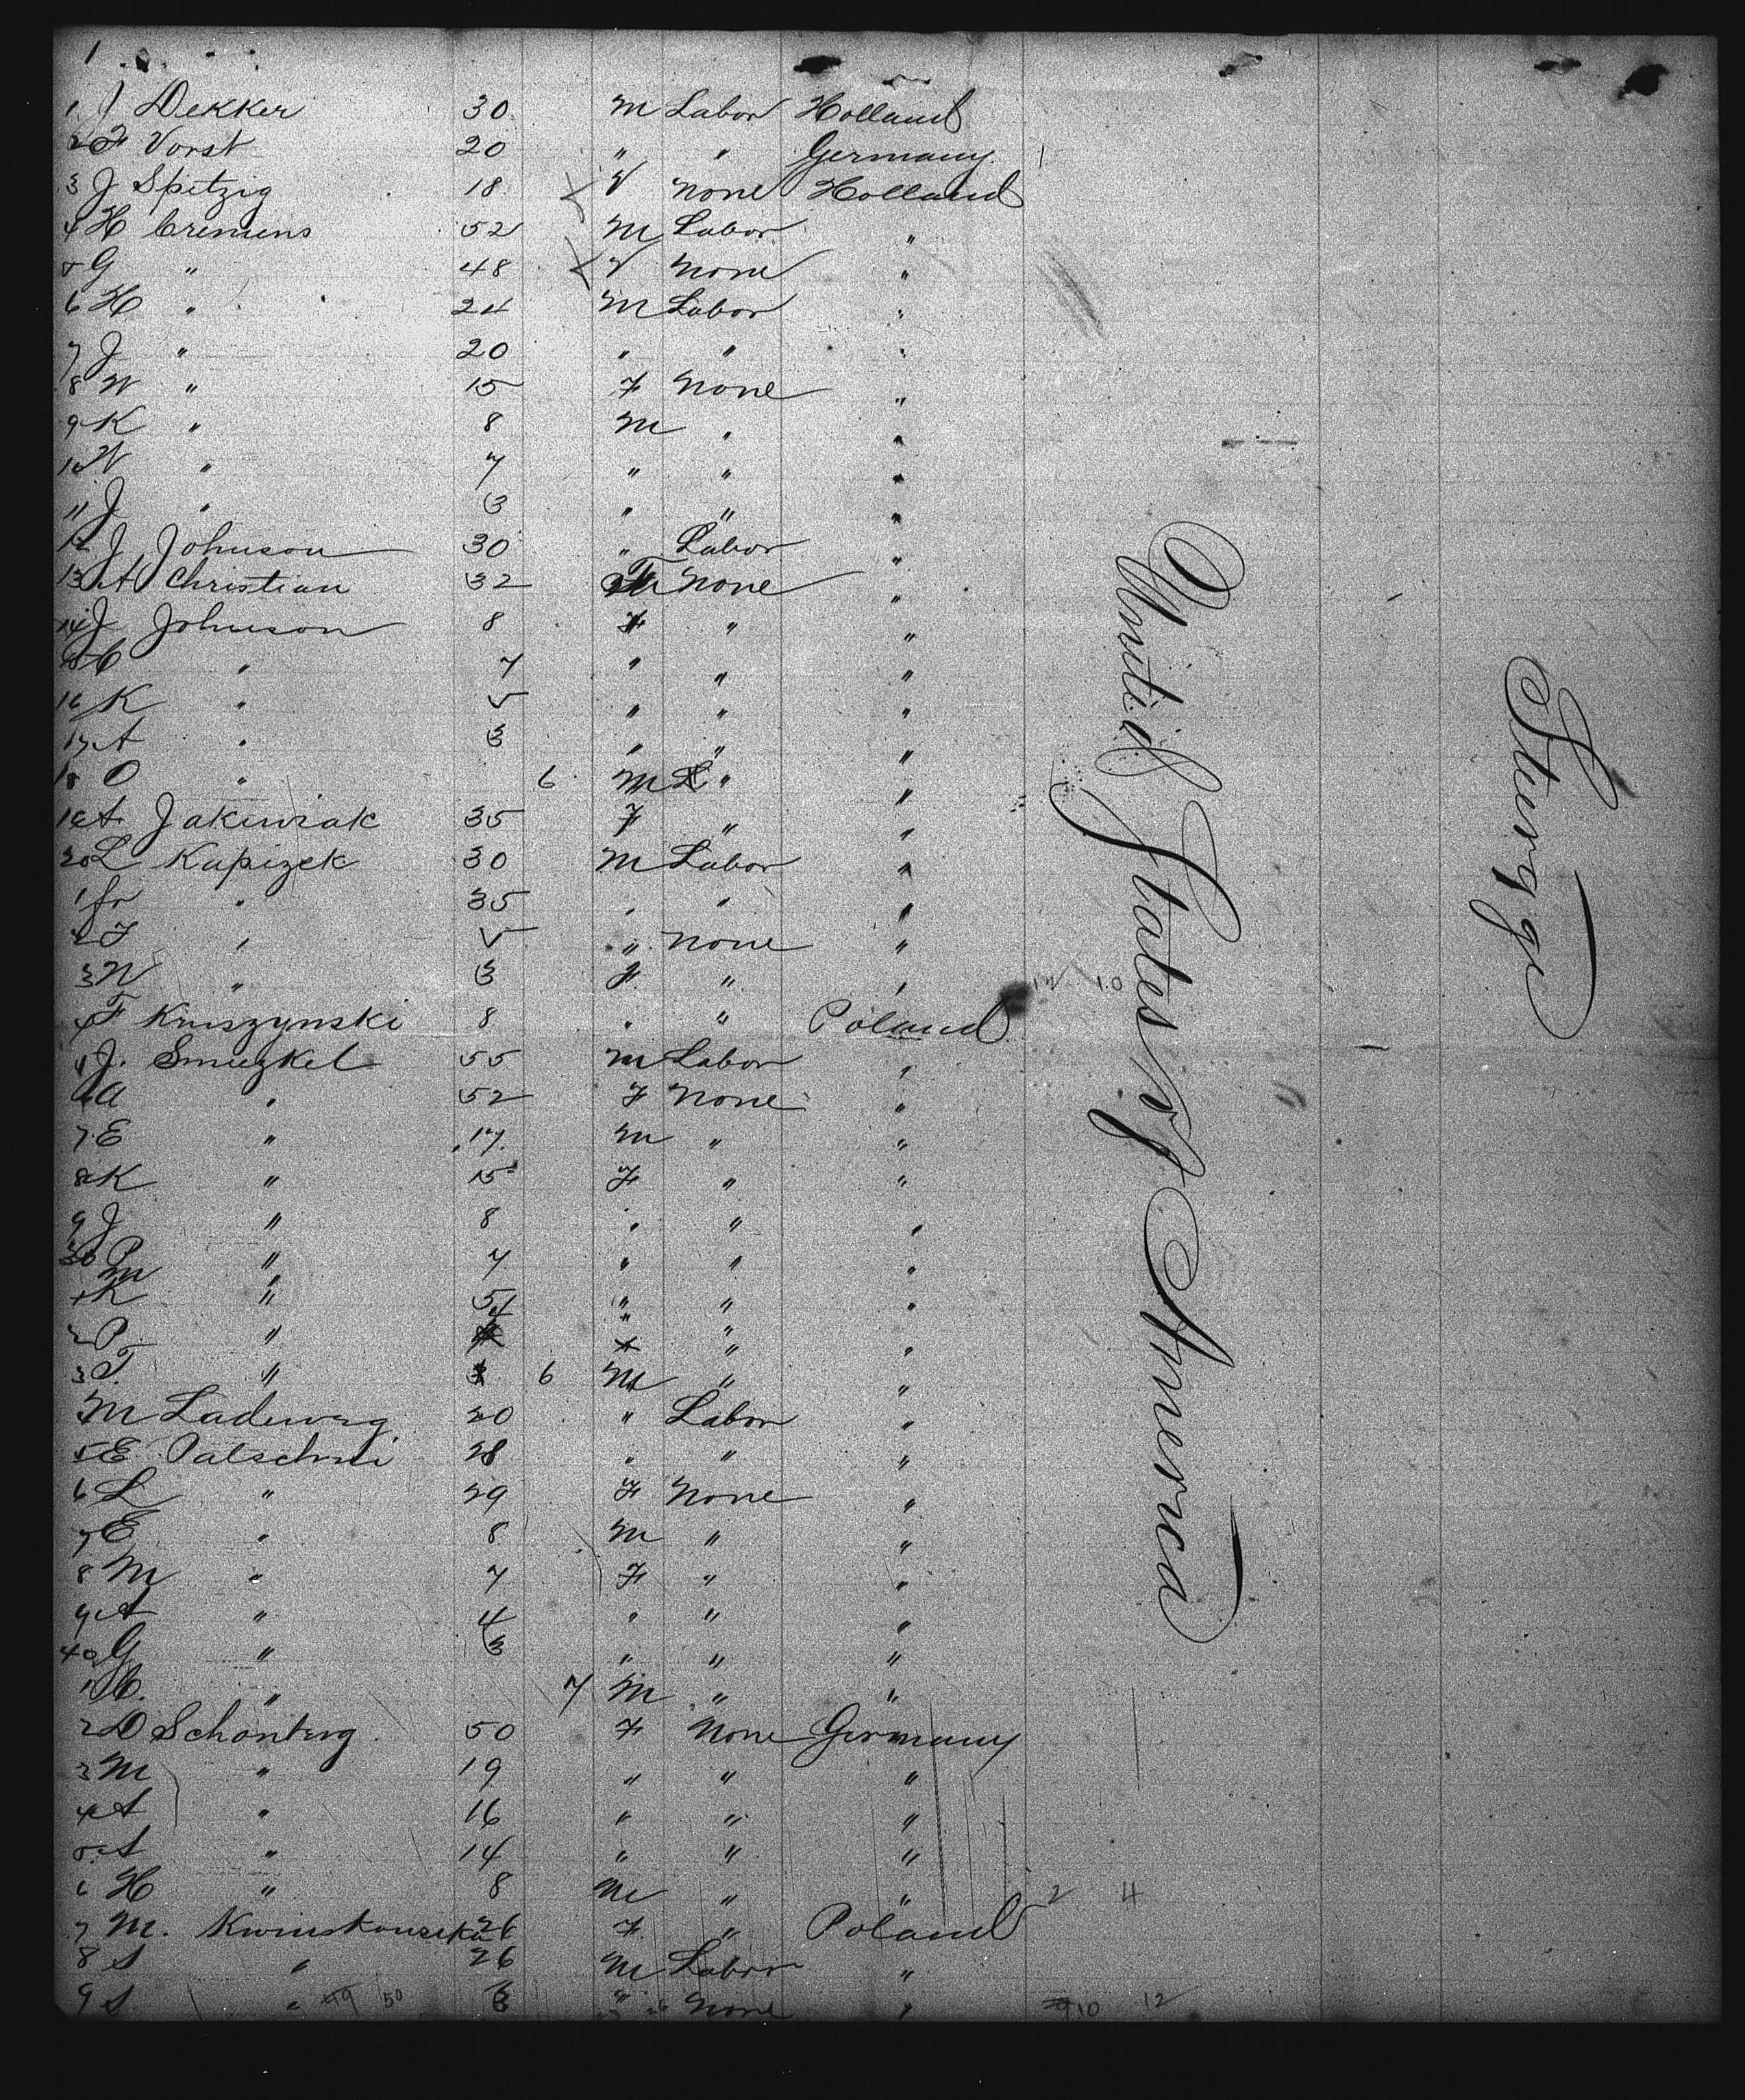 1
1 J Dekker 30 M Labor Holland
2 F Vorst 20 " " Germany
3 J Spitzig 18 F none Holland
4 H Cremens 52 M Labor "
5 G " 48 F none "
6 H " 24 M Labor "
7 J " 20 " " "
8 W " 15 F none "
9 K " 8 M " "
10 W " 7 " " "
11 J " 3 " " "
12 J Johnson 30 " Labor "
13 A Christian 32 F none "
14 J Johnson 8 F " "
15 C " 7 " " "
16 K " 5 " " "
17 A " 3 " " "
18 O " 6 M " "
19 A Jakiwiak 35 F " "
20 L Kapizek 30 M Labor "
1 Jr " 35 " " "
2 J " 5 " none "
3 W " 3 F " "
4 F Kruszynski 8 " " Poland
J. Smuzkel 55 M Labor "
A " 52 F none "
7 E " 17 M " "
8 K " 15 F " "
9 J " 8 " " "
30 P " 7 " " "
M "
1 K " 5 " " "
2 P " 4 " " "
3 T. " 6 M " "
M Ladewig 20 " Labor "
5 E Patschni 28 " " "
6 L " 29 F none "
7 E " 8 M " "
8 M " 7 F " "
9 A " 4 " " "
40 G " 3 " " "
1 C. " 7 M " "
2 D Schonberg 50 F none Germany
3 M " 19 " " "
4 A " 16 " " "
5 A " 14 " " "
6 H " 8 M " " 2 4
7 M. 26 F " Poland
8 S " 26 M Labor "
9 S " 3 " none " 10 12
United States of America
Steerage